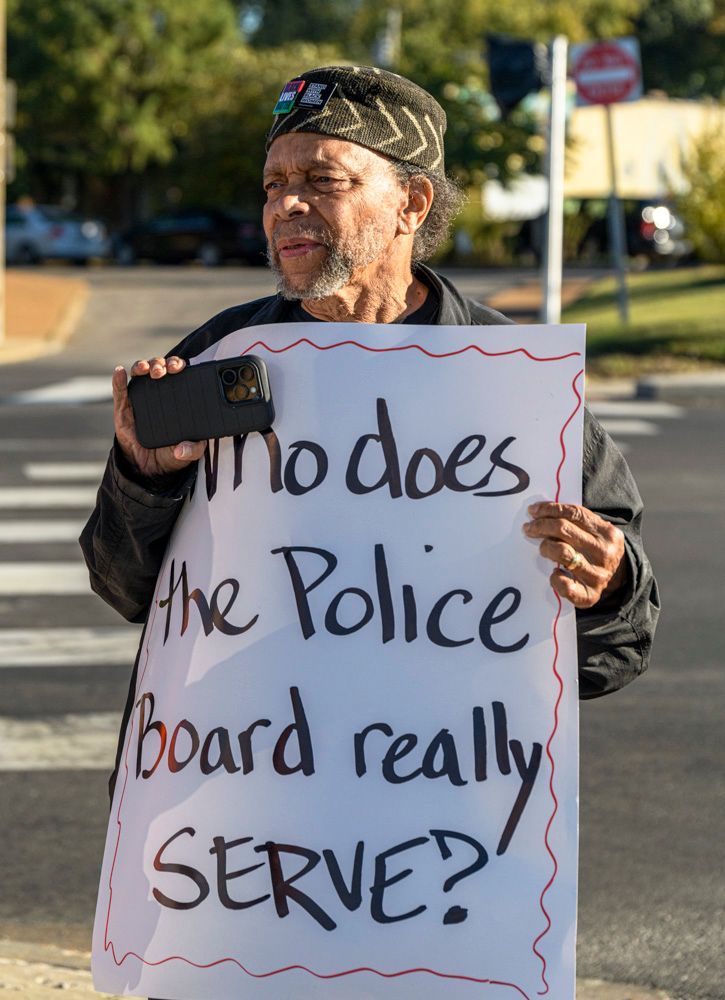 LIVES
Who does
the Police
Board really
SERVE?